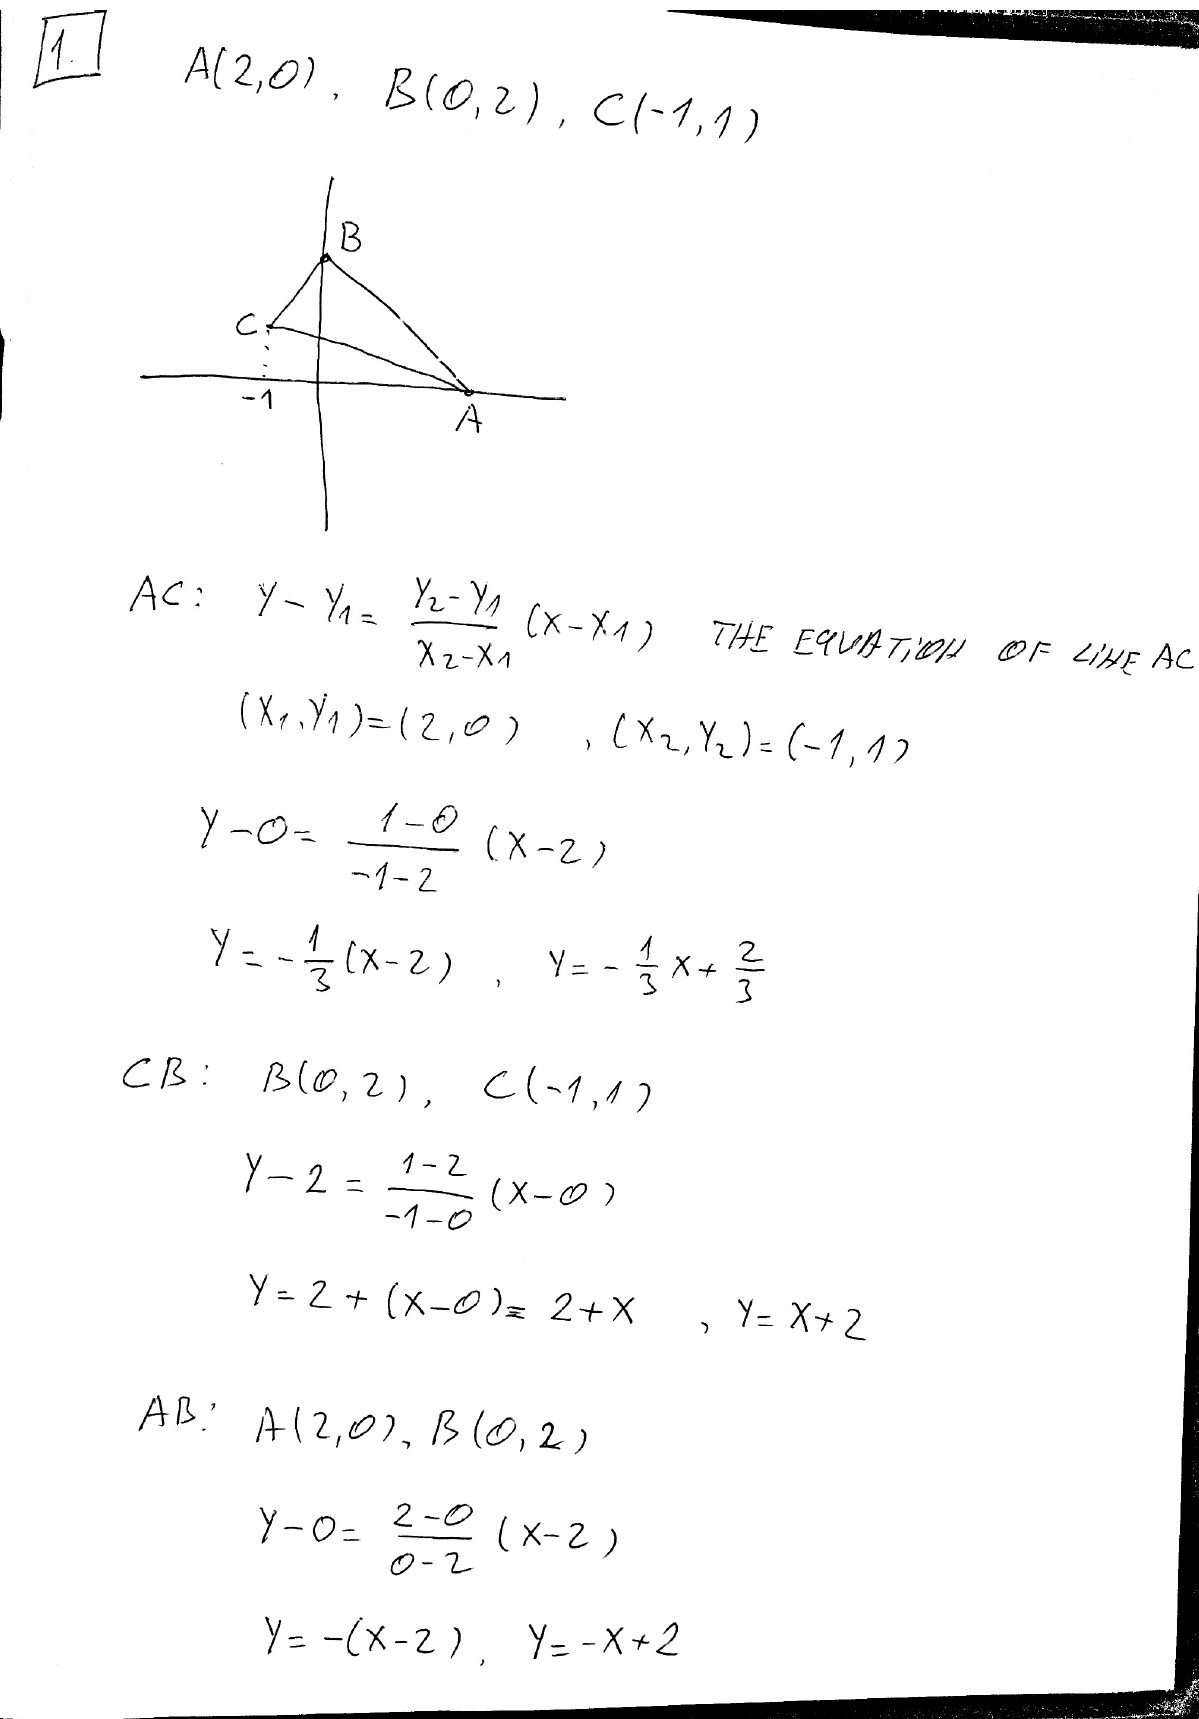 1.
A(2,0), B(0,2), C(-1,1)
B
C
-1
A
AC: Y-Y1= Y2-Y1/X2-X1 (X-X1) THE EQUATION OF LINE AC
(X1,Y1)=(2,0) , (X2,Y2)=(-1,1)
Y-0= 1-0/-1-2 (X-2)
Y=-1/3(X-2) , Y=-1/3X+2/3
CB: B(0,2), C(-1,1)
Y-2= 1-2/-1-0 (X-0)
Y=2+(X-0)=2+X , Y=X+2
AB: A(2,0), B(0,2)
Y-0= 2-0/0-2 (X-2)
Y=-(X-2), Y=-X+2